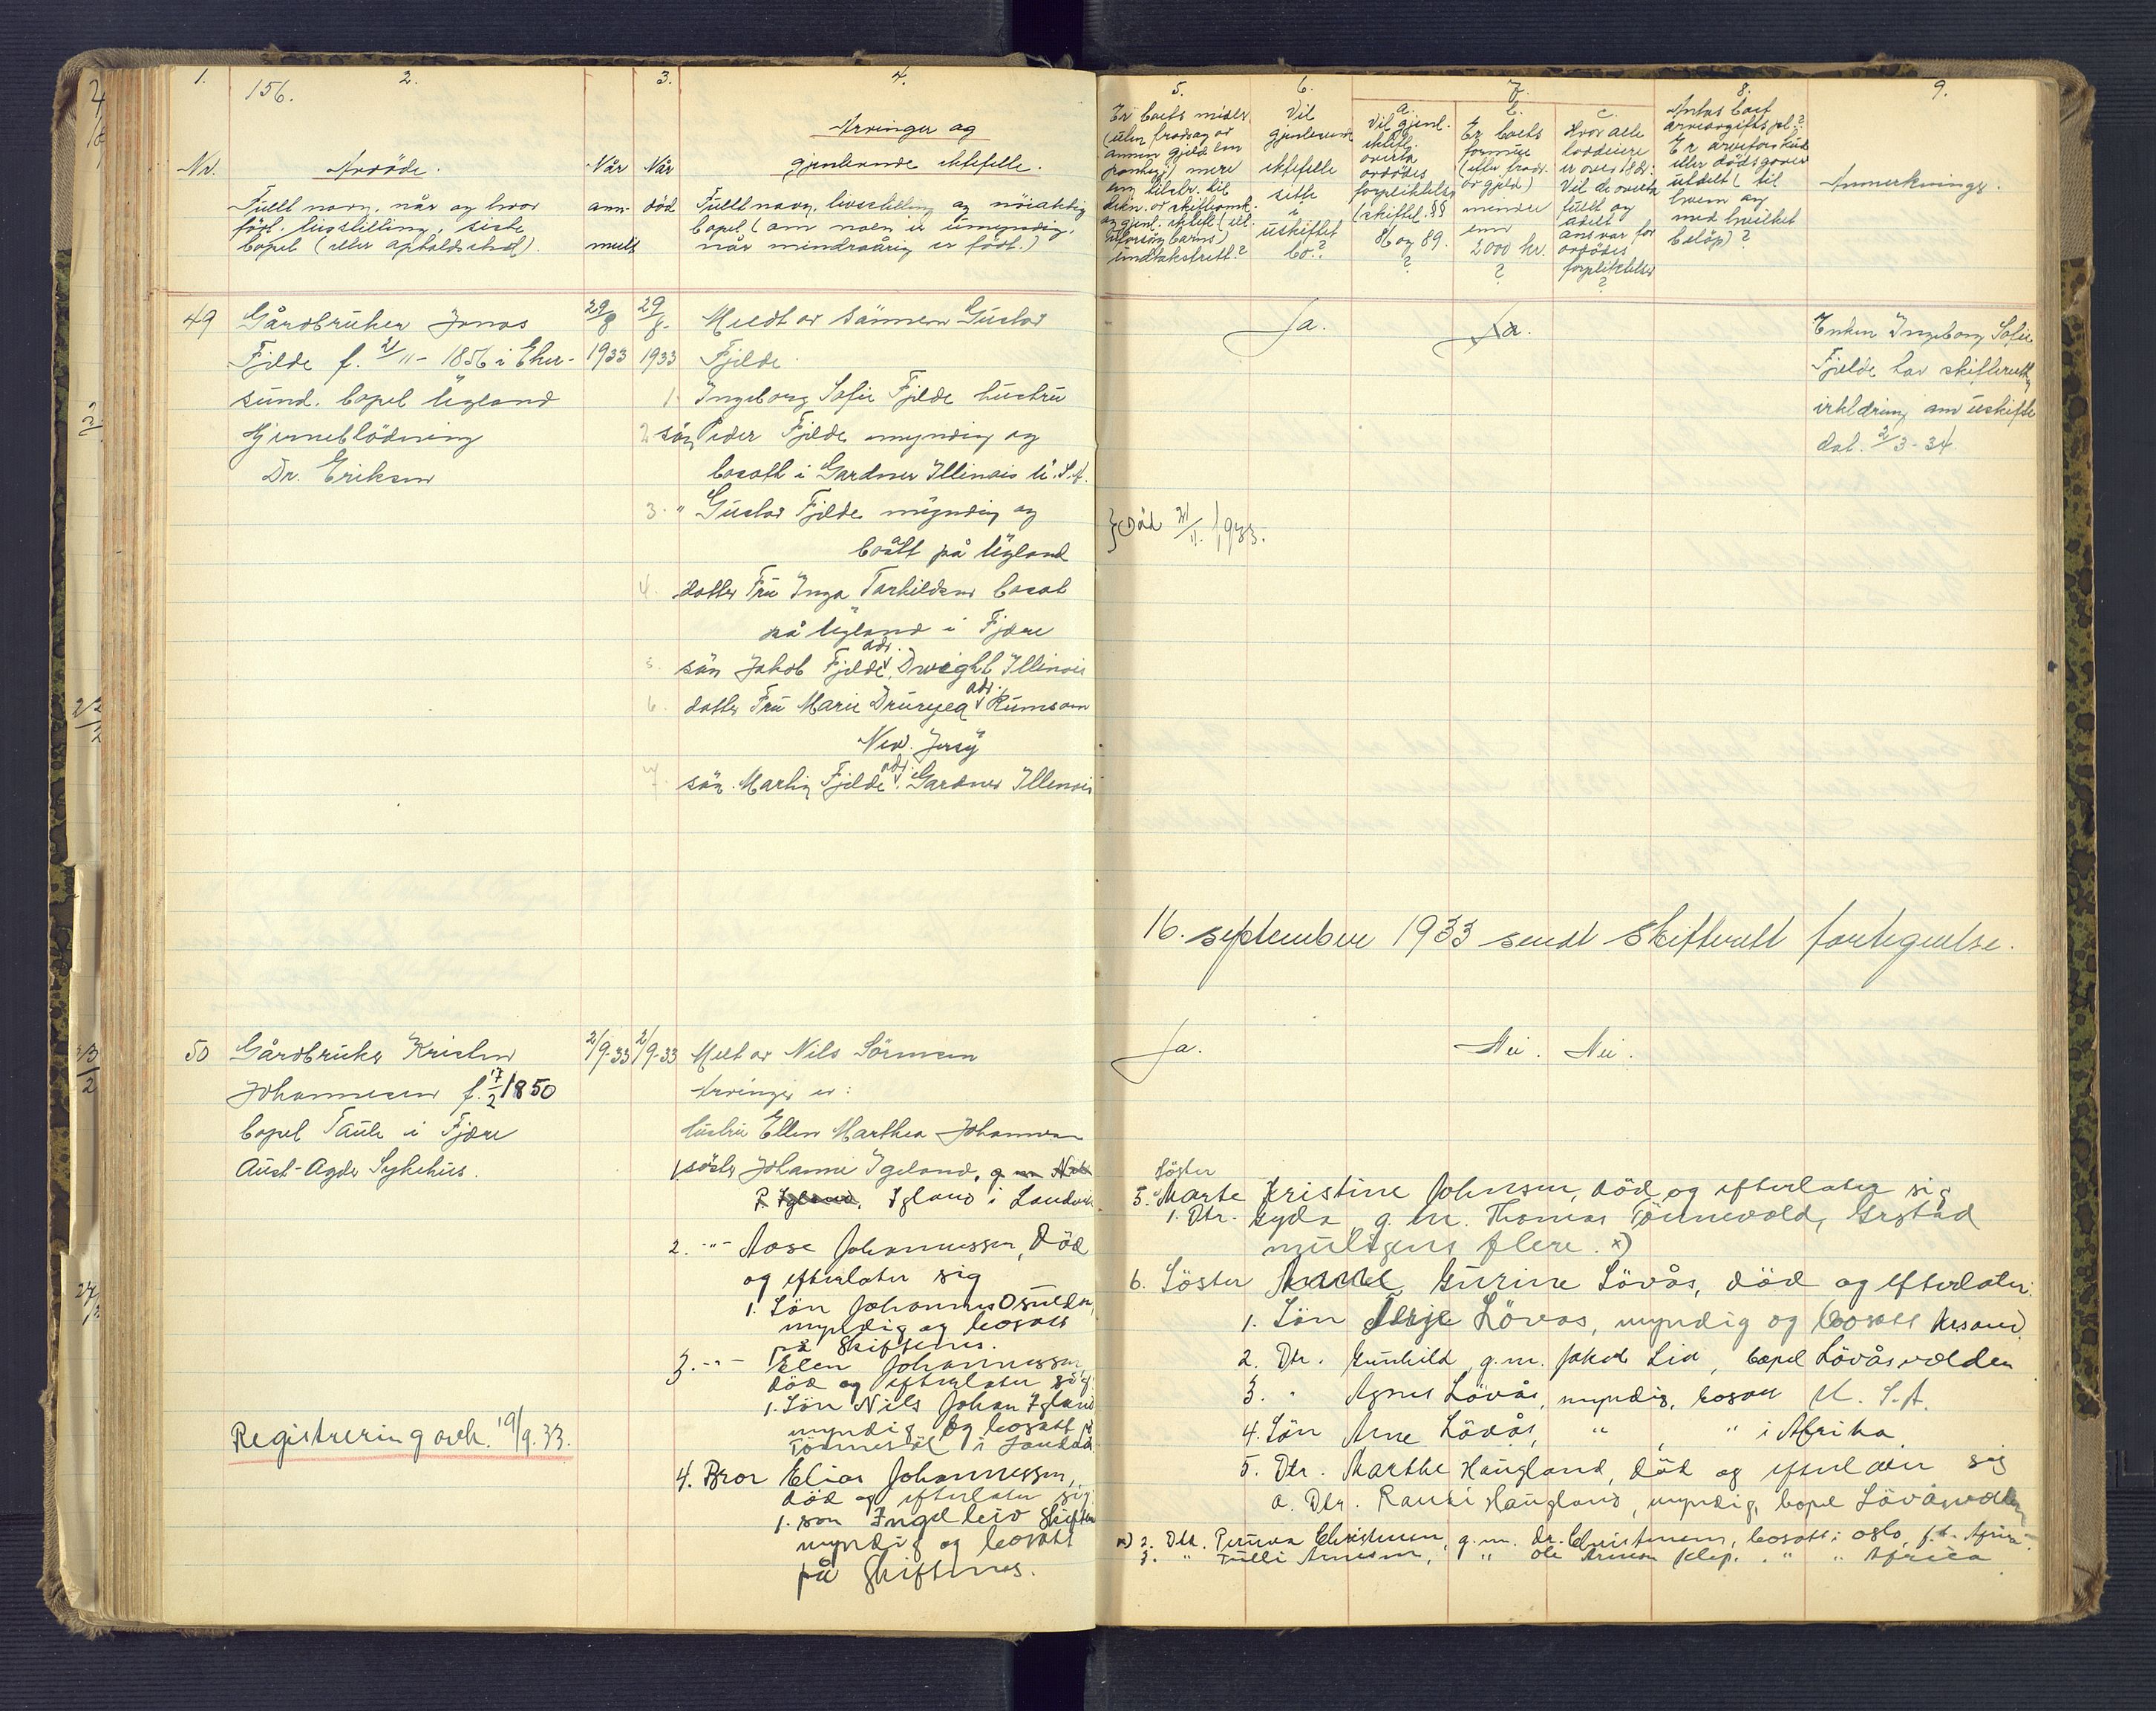 1.
156.
2.
3.
4.
Arvinger og
Nr.
Avdöde.
Når
Når
gjenlevende ektefelle.
Fullt navn, når og hvor
född. livsstilling, siste
bopel (eller opholdssted).
anmeldt
död
Fullt navn, livsstilling og nöiaktig
bopel (om noen er umyndig,
når mindreårig er född.)
49
Gårdbruker Jonas
Fjelde f. 21/11 - 1856 i Eker-
sund. bopel Ugland
Hjerneblödning
Dr. Eriksen
29/8
1933
29/8.
1933
Meldt av sönnen Gustav
Fjelde.
1. Ingeborg Sofie Fjelde hustru
2 sön Peder Fjelde myndig og
bosatt i Gardner Illinois U.S.A.
3. " Gustav Fjelde myndig og
bosatt på Ugland
4. datter Fru Inga Torkildsen bosat
på Ugland i Fjære
5. sön Jakob Fjelde, adr. Dwight Illinois
6. datter Fru Marie adr. Rumson
New Jersy
7. sön Martin Fjelde adr. Gardner Illinois
50
Gårdbruker Kristen
Johannesen f. 17/2 1850
bopel i Fjære
Aust-Agder Sykehus.
2/9-33
2/9-33
Meldt av Nils Sörensen
Arvinger er:
hustru Ellen Marthea Johannesen
1 söster Johanne Igeland,
Igland i Landvik
2. -"- Aase Johannessen, Död
og efterlater sig
1. Sön Johannes
myndig og bosatt
på Skiftenes.
3. -"- Elen Johannessen,
död og efterlater sig
1. Sön Nils Johan Igland
myndig og bosatt på
i Landvik
4. Bror Elias Johannessen,
död og efterlater sig
1. son Ingelleiv Skiften
myndig og bosatt
på Skiftenes.
Registrering avh. 19/9. 33.
5.
6.
7.
8.
9.
Er boets midler
(uten fradrag av
annen gjeld enn
pantegj.) mere
enn tilstr. til
dekn. av skifteomk.
og gjenl. ektef. (ell.
uforsörg. barns)
undtaksrett?
Vil
gjenlevende
ektefelle
sitte
i
uskiftet
bo?
a.
Vil gjenl.
ektef.
overta
avdödes
forpliktelser
(skiftel. §§
86 og 89.
?
b.
Er boets
formue
(efter fradr.
av gjeld)
mindre
enn
2000 kr.
?
c.
Hvor alle
loddeiere
er over 18 år:
Vil de overta
fullt og
ansvar for
avdödes
forpliktelser
?
Antas boet
arveavgiftspl.?
Er arveforskudd
eller dödsgaver
utdelt (til
hvem og
med hvilket
belöp)?
Anmerkninger.
Ja.
Ja.
Enken Ingeborg Sofie
Fjelde har skifterettens
erklæring om uskifte
dat. 2/3-34
} Död 21/11. 1933.
16. september 1933 sendt Skifterett fortegnelse.
Ja.
Nei. Nei.
Söster
5. Marte Kristine Johnsen, död og efterlater sig
1. Dtr. Gyda, g. m. Thomas Tönnevold, Grstad
muligens flere. x)
6. Söster Gurine Lövås, död og efterlater:
1. Sön Terje Lövås, myndig og bosatt Krsand.
2. Dtr. Gunhild, g.m. Jakob Lia, bopel Lövåsvolden
3. " Agnes Lövås, myndig, bosatt U. S. A.
4. Sön Arne Lövås, " , " i Afrika
5. Dtr. Marthe Haugland, död og efterlater sig
a. Dtr. Randi Haugland, myndig, bopel Lövåsvolden
x) 2. Dtr. Christensen, g.m. dr. Christensen, bosatt i Oslo, f.t. Africa
3. " Tulli Arnesen, " Ole Arnesen " " Africa